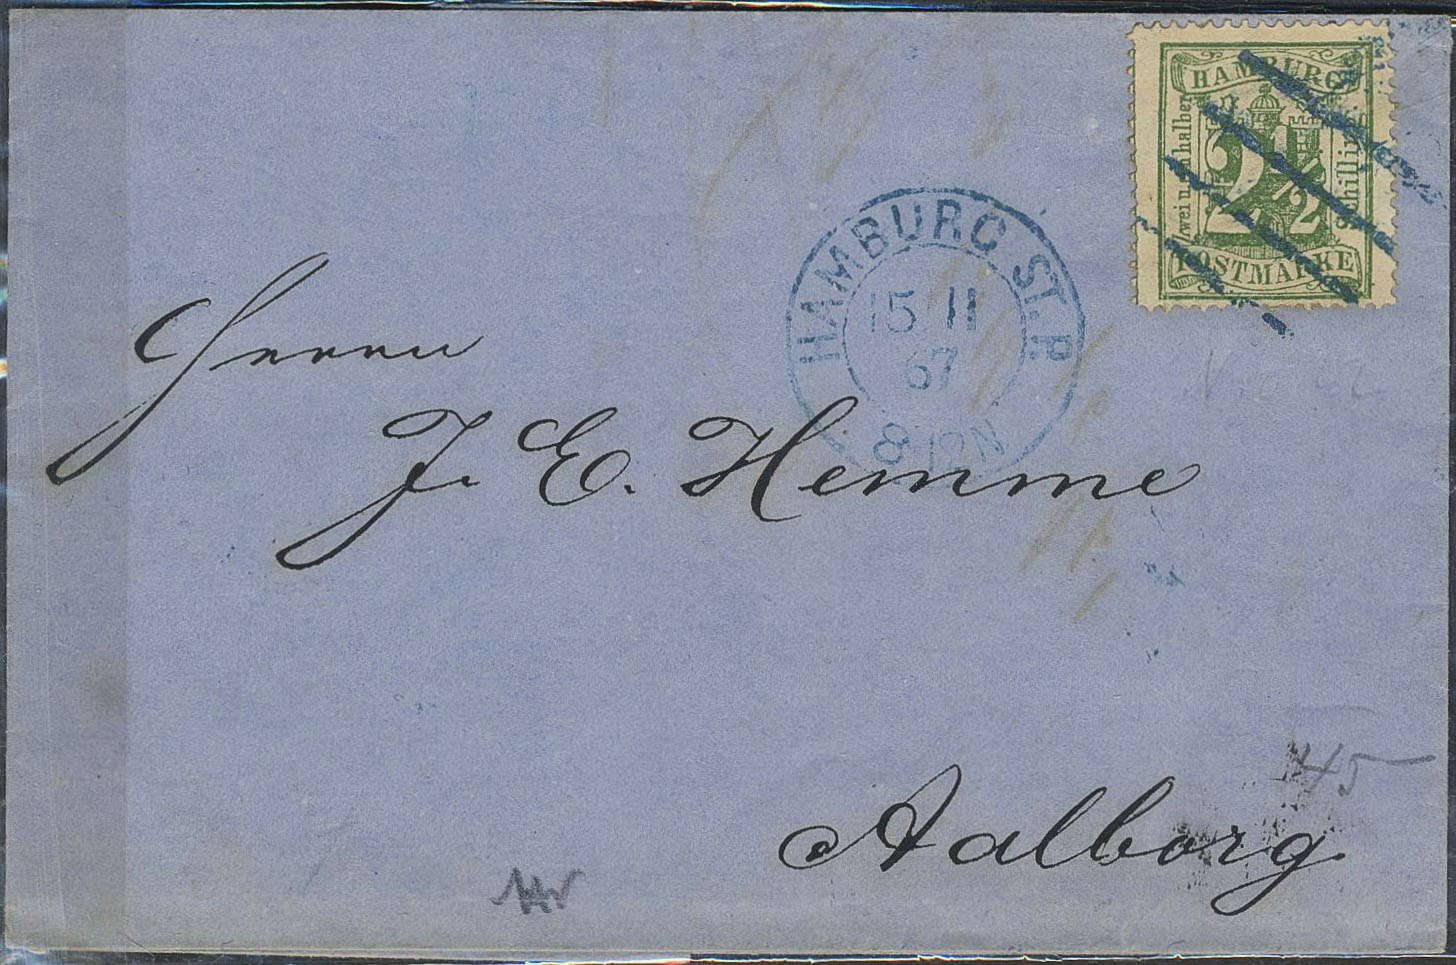 HAMBURG
Zwei u. ein halber
2½
Schilling
POSTMARKE
HAMBURG ST. P.
15 11
67
8-12 N
Herrn
J. E. Hemme
Aalborg
45